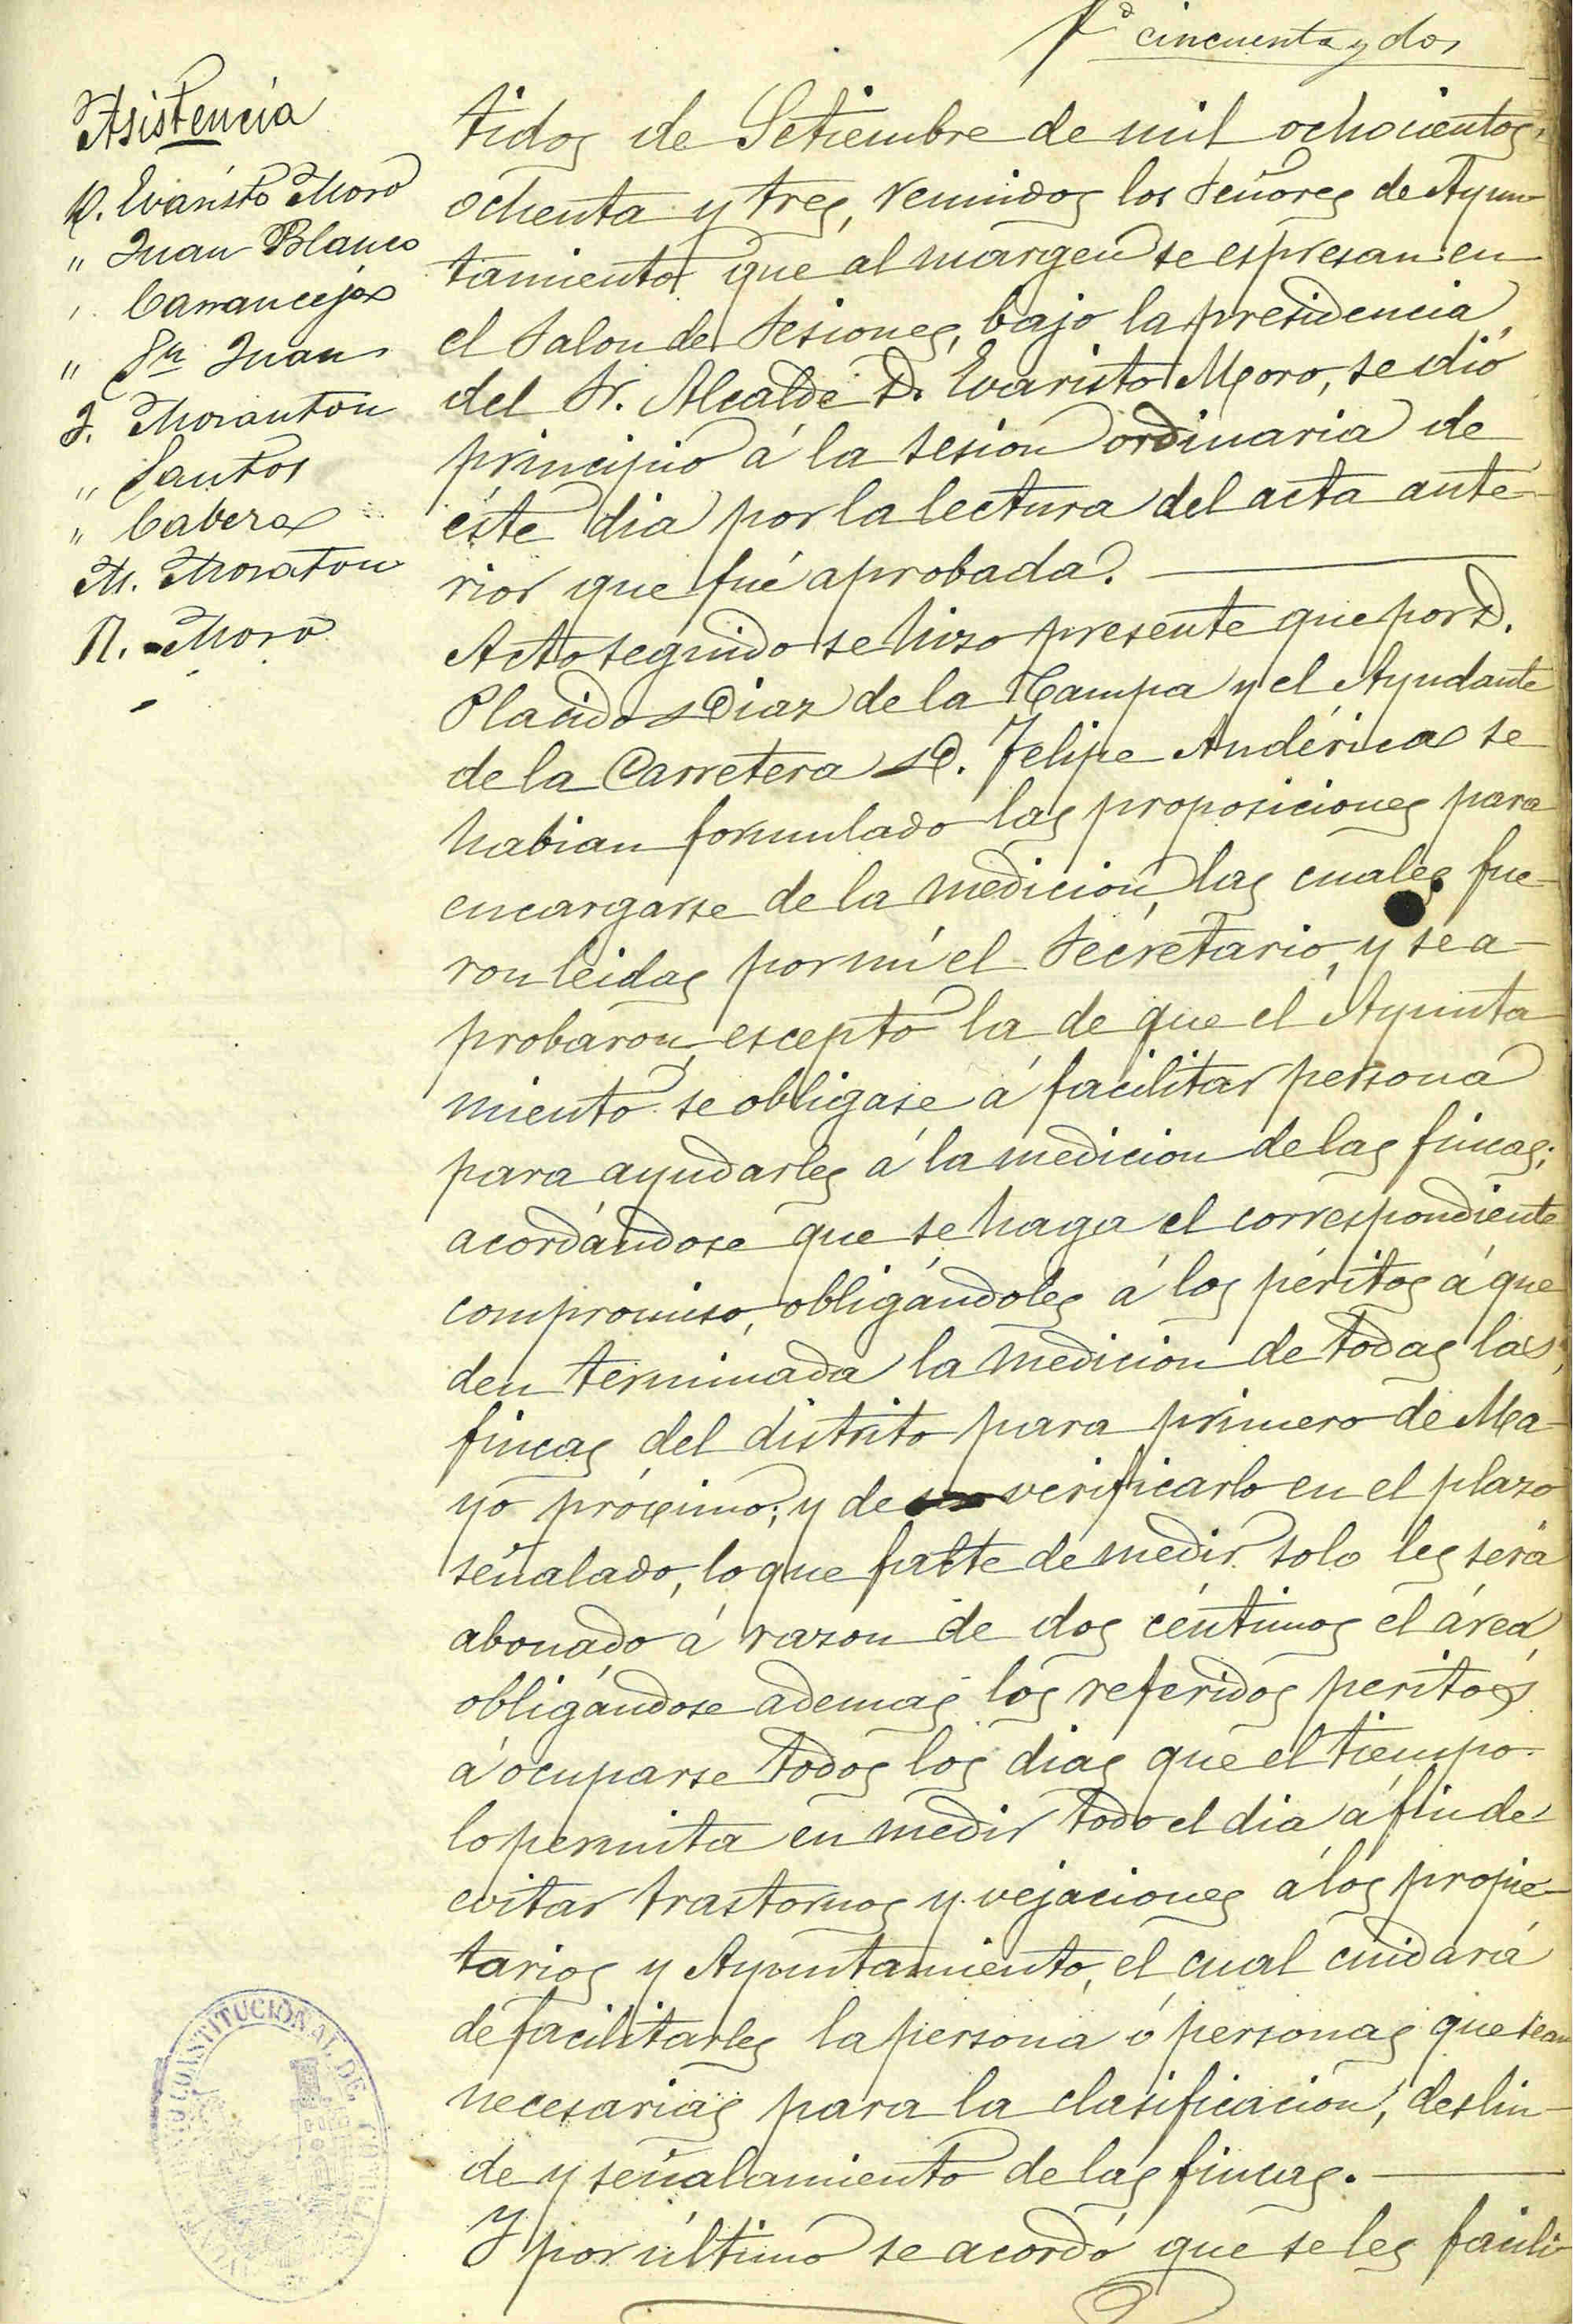 Fº cincuenta y dos
Asistencia
D. Evaristo Moro
" Juan Blanco
" Carrancejas
" Sn Juan
J. Morantón
" Santos
" Cabeza
M. Moraton
N. Moro
tidos de Setiembre de mil ochocientos
ochenta y tres, reunidos los Señores de Ayun-
tamiento que al margen se espresan en
el Salon de Sesiones, bajo la presidencia
del Sr. Alcalde D. Evaristo Moro, se dió
principio á la sesion ordinaria de
éste dia por la lectura del acta ante-
rior que fué aprobada.
Acto seguido se hizo presente que por D.
Placido Diaz de la Campa y el Ayudante
de la Carretera D. Felipe Andérica se
habian formulado las proposiciones para
encargarse de la medición, las cuales fue-
ron leidas por mí el Secretario, y se a-
probaron, escepto la de que el Ayunta-
miento se obligase á facilitar persona
para ayudarles á la medicion de las fincas;
acordándose que se haga el correspondiente
compromiso, obligándoles á los péritos á que
den terminada la medicion de todas las
fincas del distrito para primero de Ma-
yo próximo; y de verificarlo en el plazo
señalado, lo que falte de medir solo les será
abonado á razon de dos céntimos el área,
obligándose ademas los referidos peritos
á ocuparse todos los dias que el tiempo
lo permita en medir todo el dia á fin de
evitar trastornos y vejaciones á los propie-
tarios y Ayuntamiento, el cual cuidará
de facilitarles la persona ó personas que sean
necesarias para la clasificacion, deslin-
de y señalamiento de las fincas.
Y por último se acordó que se les facili-
CONSTITUCIONAL DE